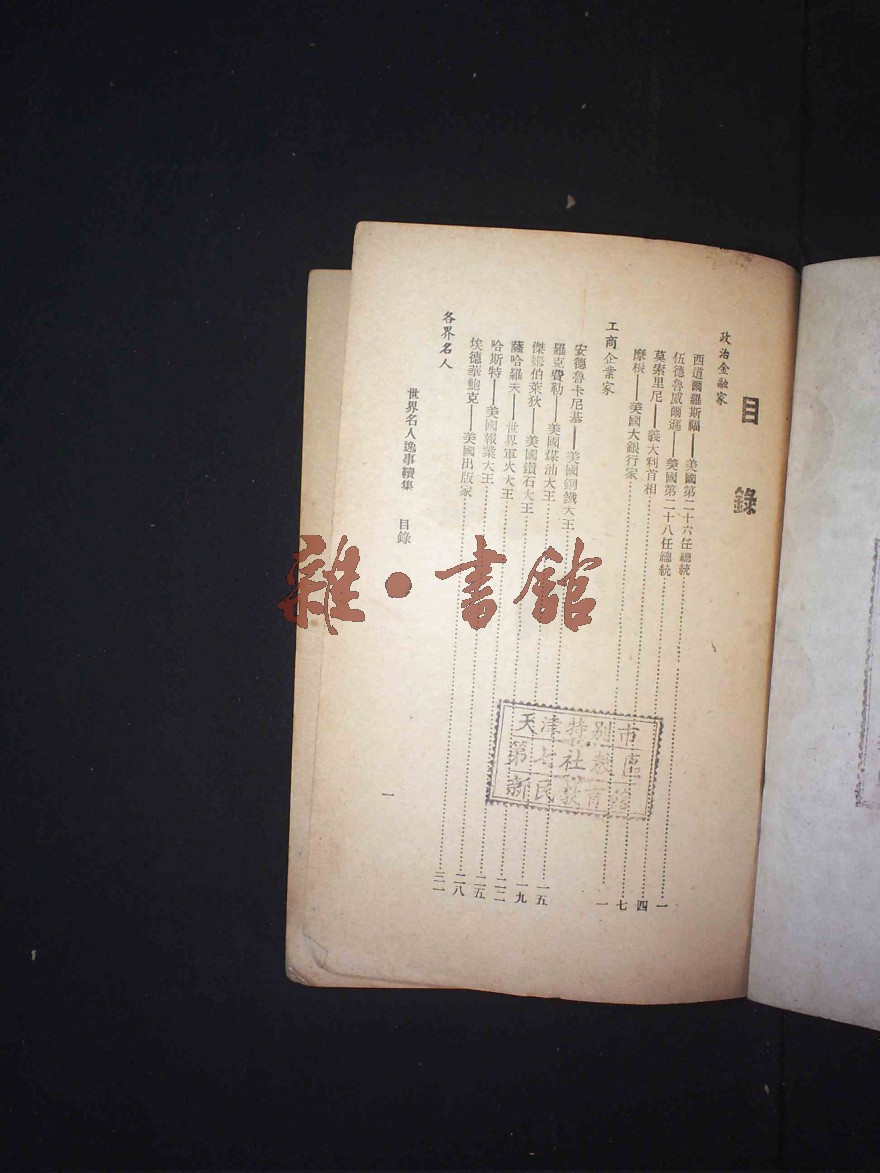 目錄
政治金融家
西道爾羅斯福——美國第二十六任總統……一
伍德魯威爾遜——美國第二十八任總統……四
莫索里尼——義大利首相……七
摩根——美國大銀行家……一
工商企業家
安德魯卡尼基——美國鋼鐵大王……一五
羅克費勒——美國煤油大王……一九
傑姆伯萊狄——美國鑽石大王……二二
薩哈羅夫——世界軍火大王……二五
哈斯特——美國報業大王……二八
埃德華鮑克——美國出版家……三一
各界名人
世界名人逸事續集 目錄
一
天津特別市
第七社教區
新民教育館
雜·書館